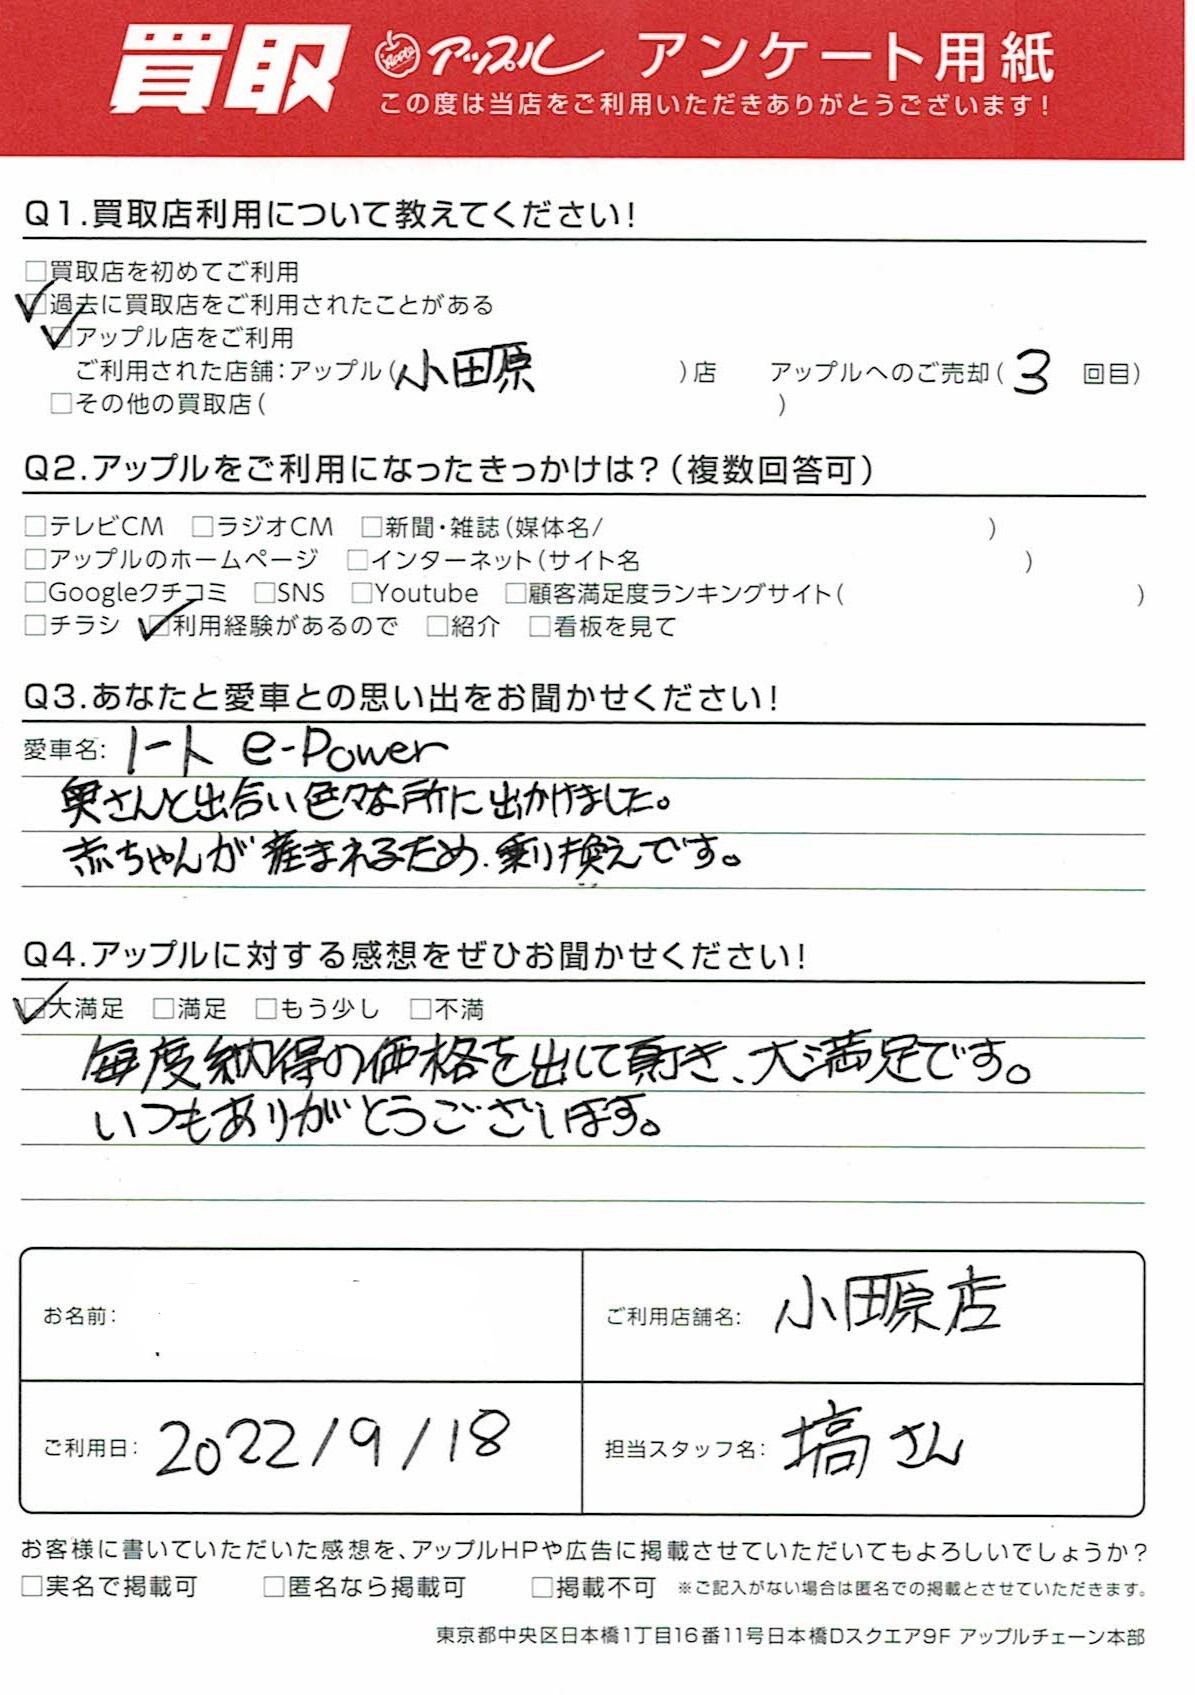 買取 Apple アップル アンケート用紙
この度は当店をご利用いただきありがとうございます!
Q1.買取店利用について教えてください!
□買取店を初めてご利用
☑過去に買取店をご利用されたことがある
☑アップル店をご利用
ご利用された店舗:アップル(小田原 )店 アップルへのご売却(3 回目)
□その他の買取店( )
Q2.アップルをご利用になったきっかけは?(複数回答可)
□テレビCM □ラジオCM □新聞・雑誌(媒体名/ )
□アップルのホームページ □インターネット(サイト名 )
□Googleクチコミ □SNS □Youtube □顧客満足度ランキングサイト( )
□チラシ ☑利用経験があるので □紹介 □看板を見て
Q3.あなたと愛車との思い出をお聞かせください!
愛車名: ノート e-Power
奥さんと出合い色々な所に出かけました。
赤ちゃんが産まれるため、乗り換えです。
Q4.アップルに対する感想をぜひお聞かせください!
☑大満足 □満足 □もう少し □不満
毎度納得の価格を出して頂き、大満足です。
いつもありがとうございます。
お名前: ご利用店舗名: 小田原店
ご利用日: 2022/9/18 担当スタッフ名: 塙さん
お客様に書いていただいた感想を、アップルHPや広告に掲載させていただいてもよろしいでしょうか?
□実名で掲載可 □匿名なら掲載可 □掲載不可 ※ご記入がない場合は匿名での掲載とさせていただきます。
東京都中央区日本橋1丁目16番11号日本橋Dスクエア9F アップルチェーン本部